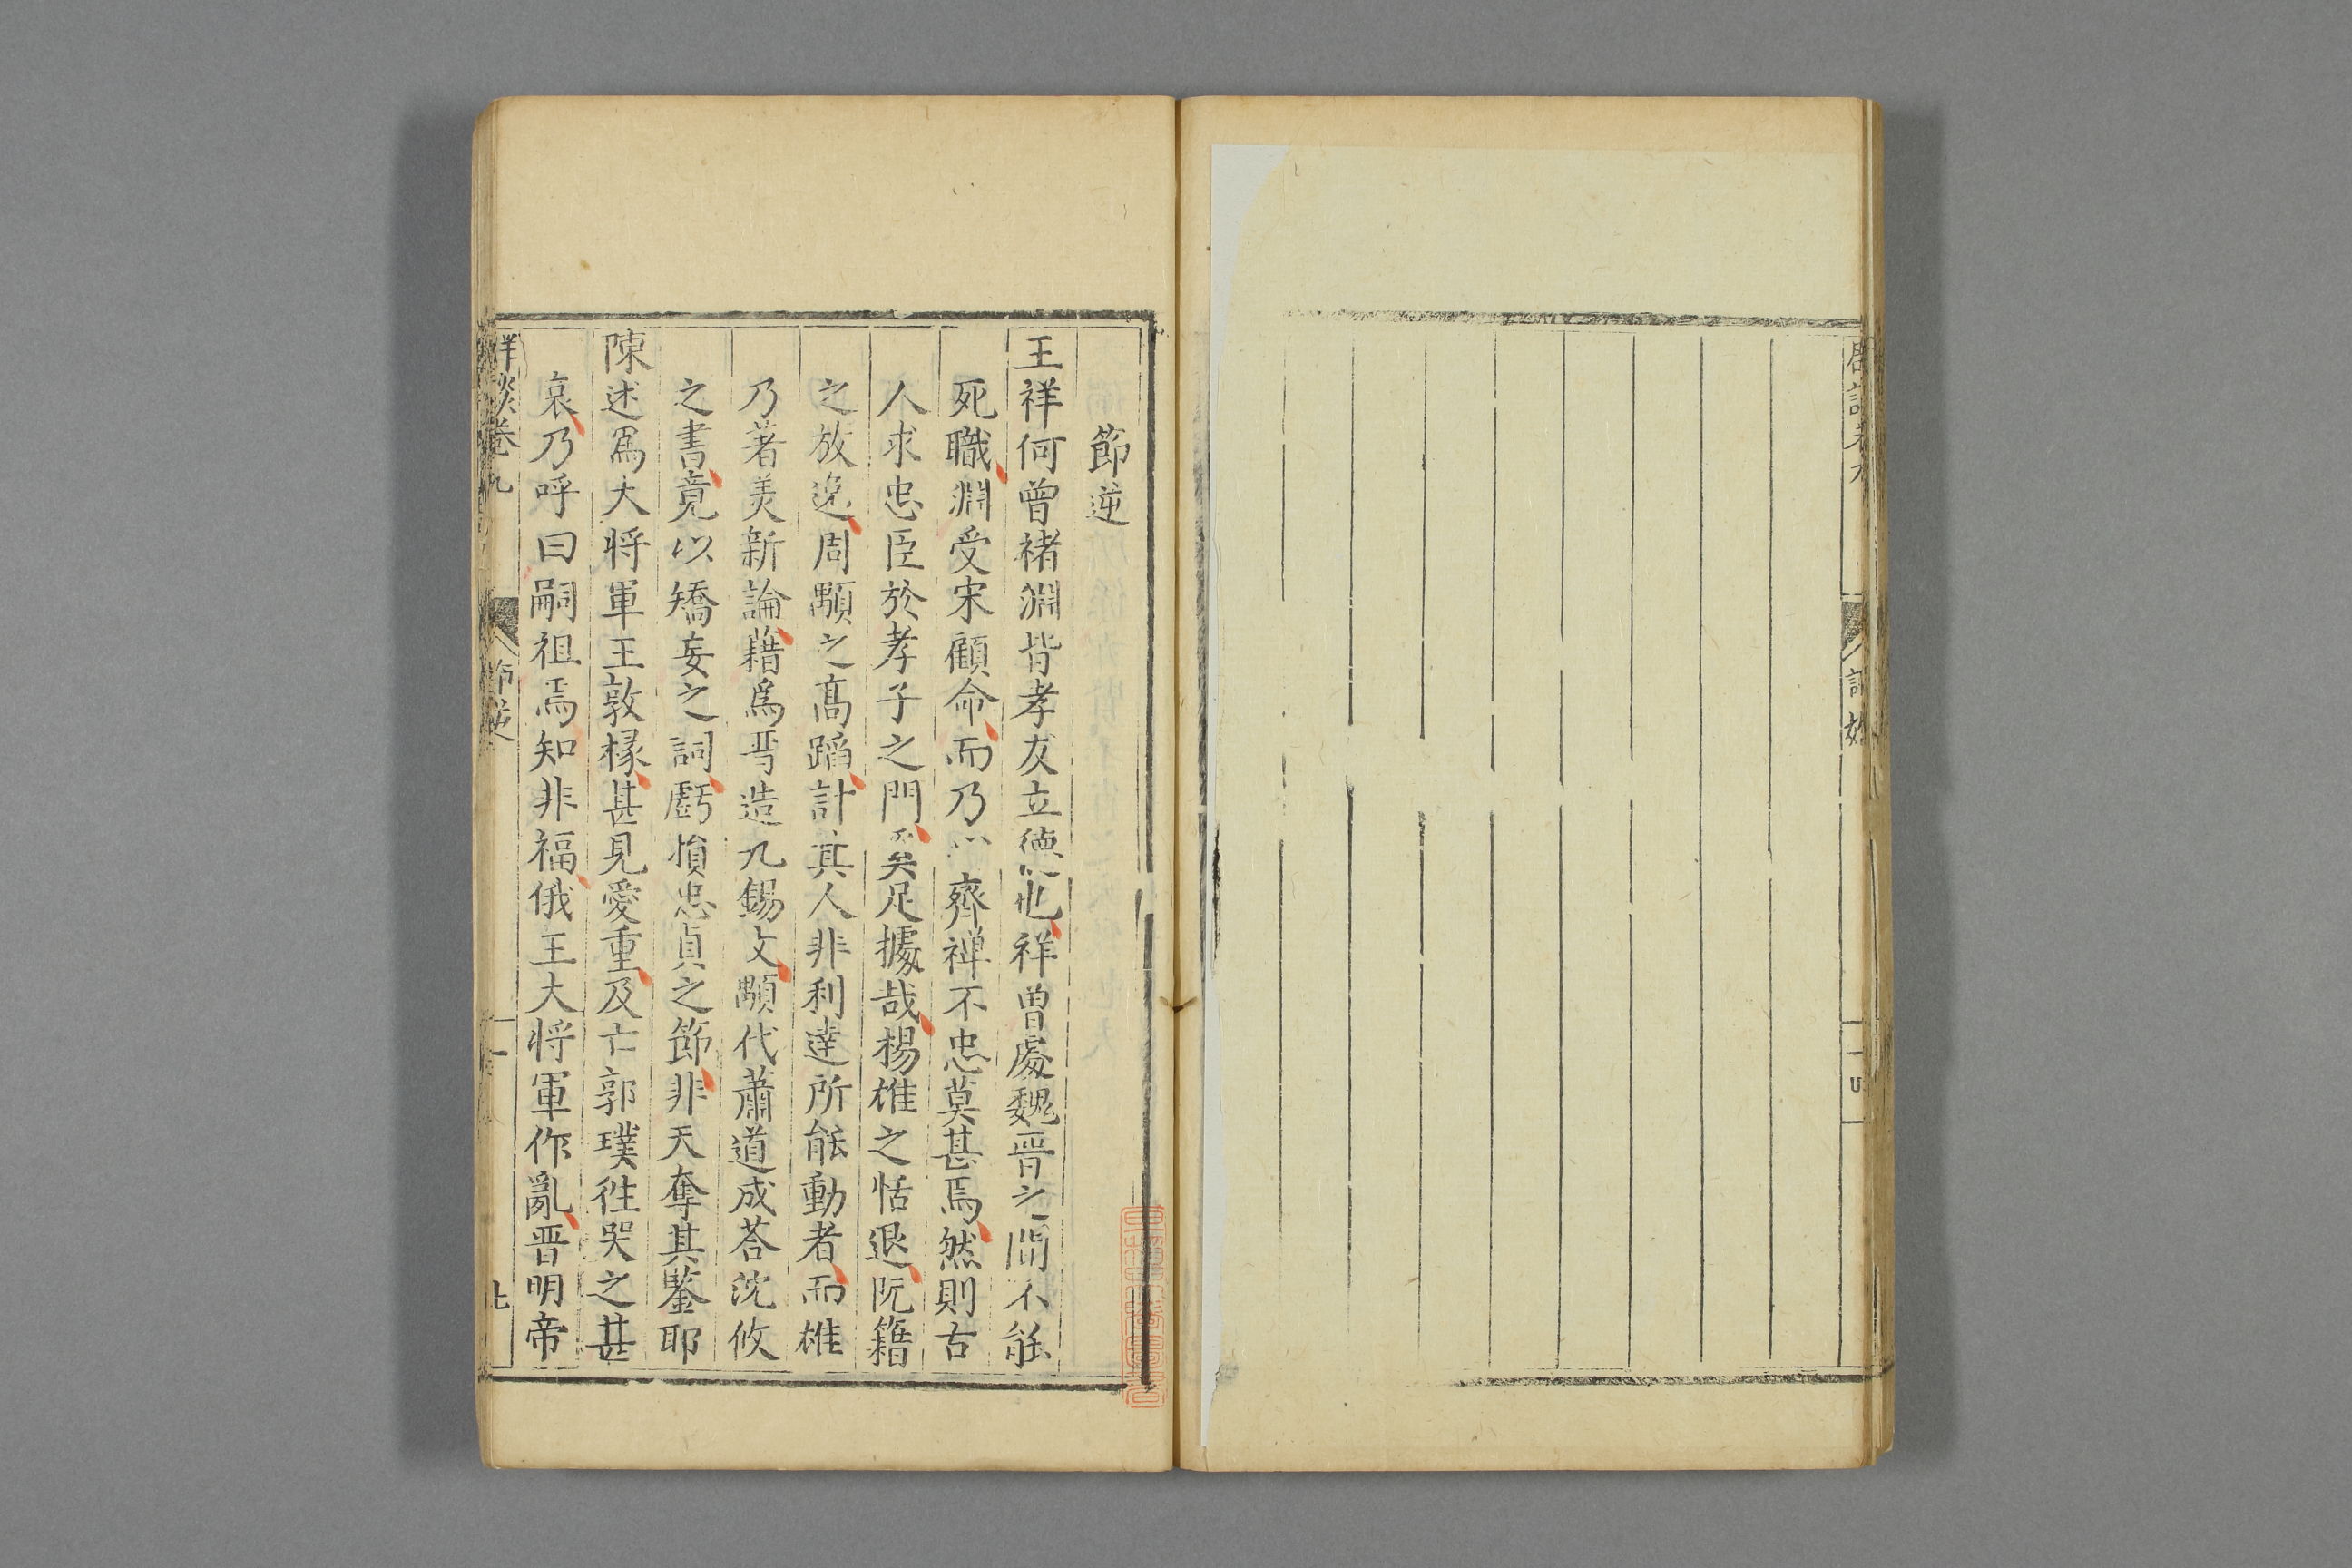 節逆
王祥何曾褚淵皆孝友立德也祥曾處魏晉之間不能
死職淵受宋顧命而乃齊禅不忠莫甚焉然則古
人求忠臣於孝子之門矣足據哉楊雄之恬退阮籍
之放逸周顒之高蹈計其人非利達所能動者而雄
乃著美新論藉爲晋造九錫文顒代蕭道成荅沈攸
之書竟以矯妄之詞虧損忠貞之節非天奪其鑒耶
陳述爲大將軍王敦椽甚見愛重及亡郭璞徃哭之甚
哀乃呼曰嗣祖焉知非福俄王大將軍作亂晋明帝
卷九
節逆